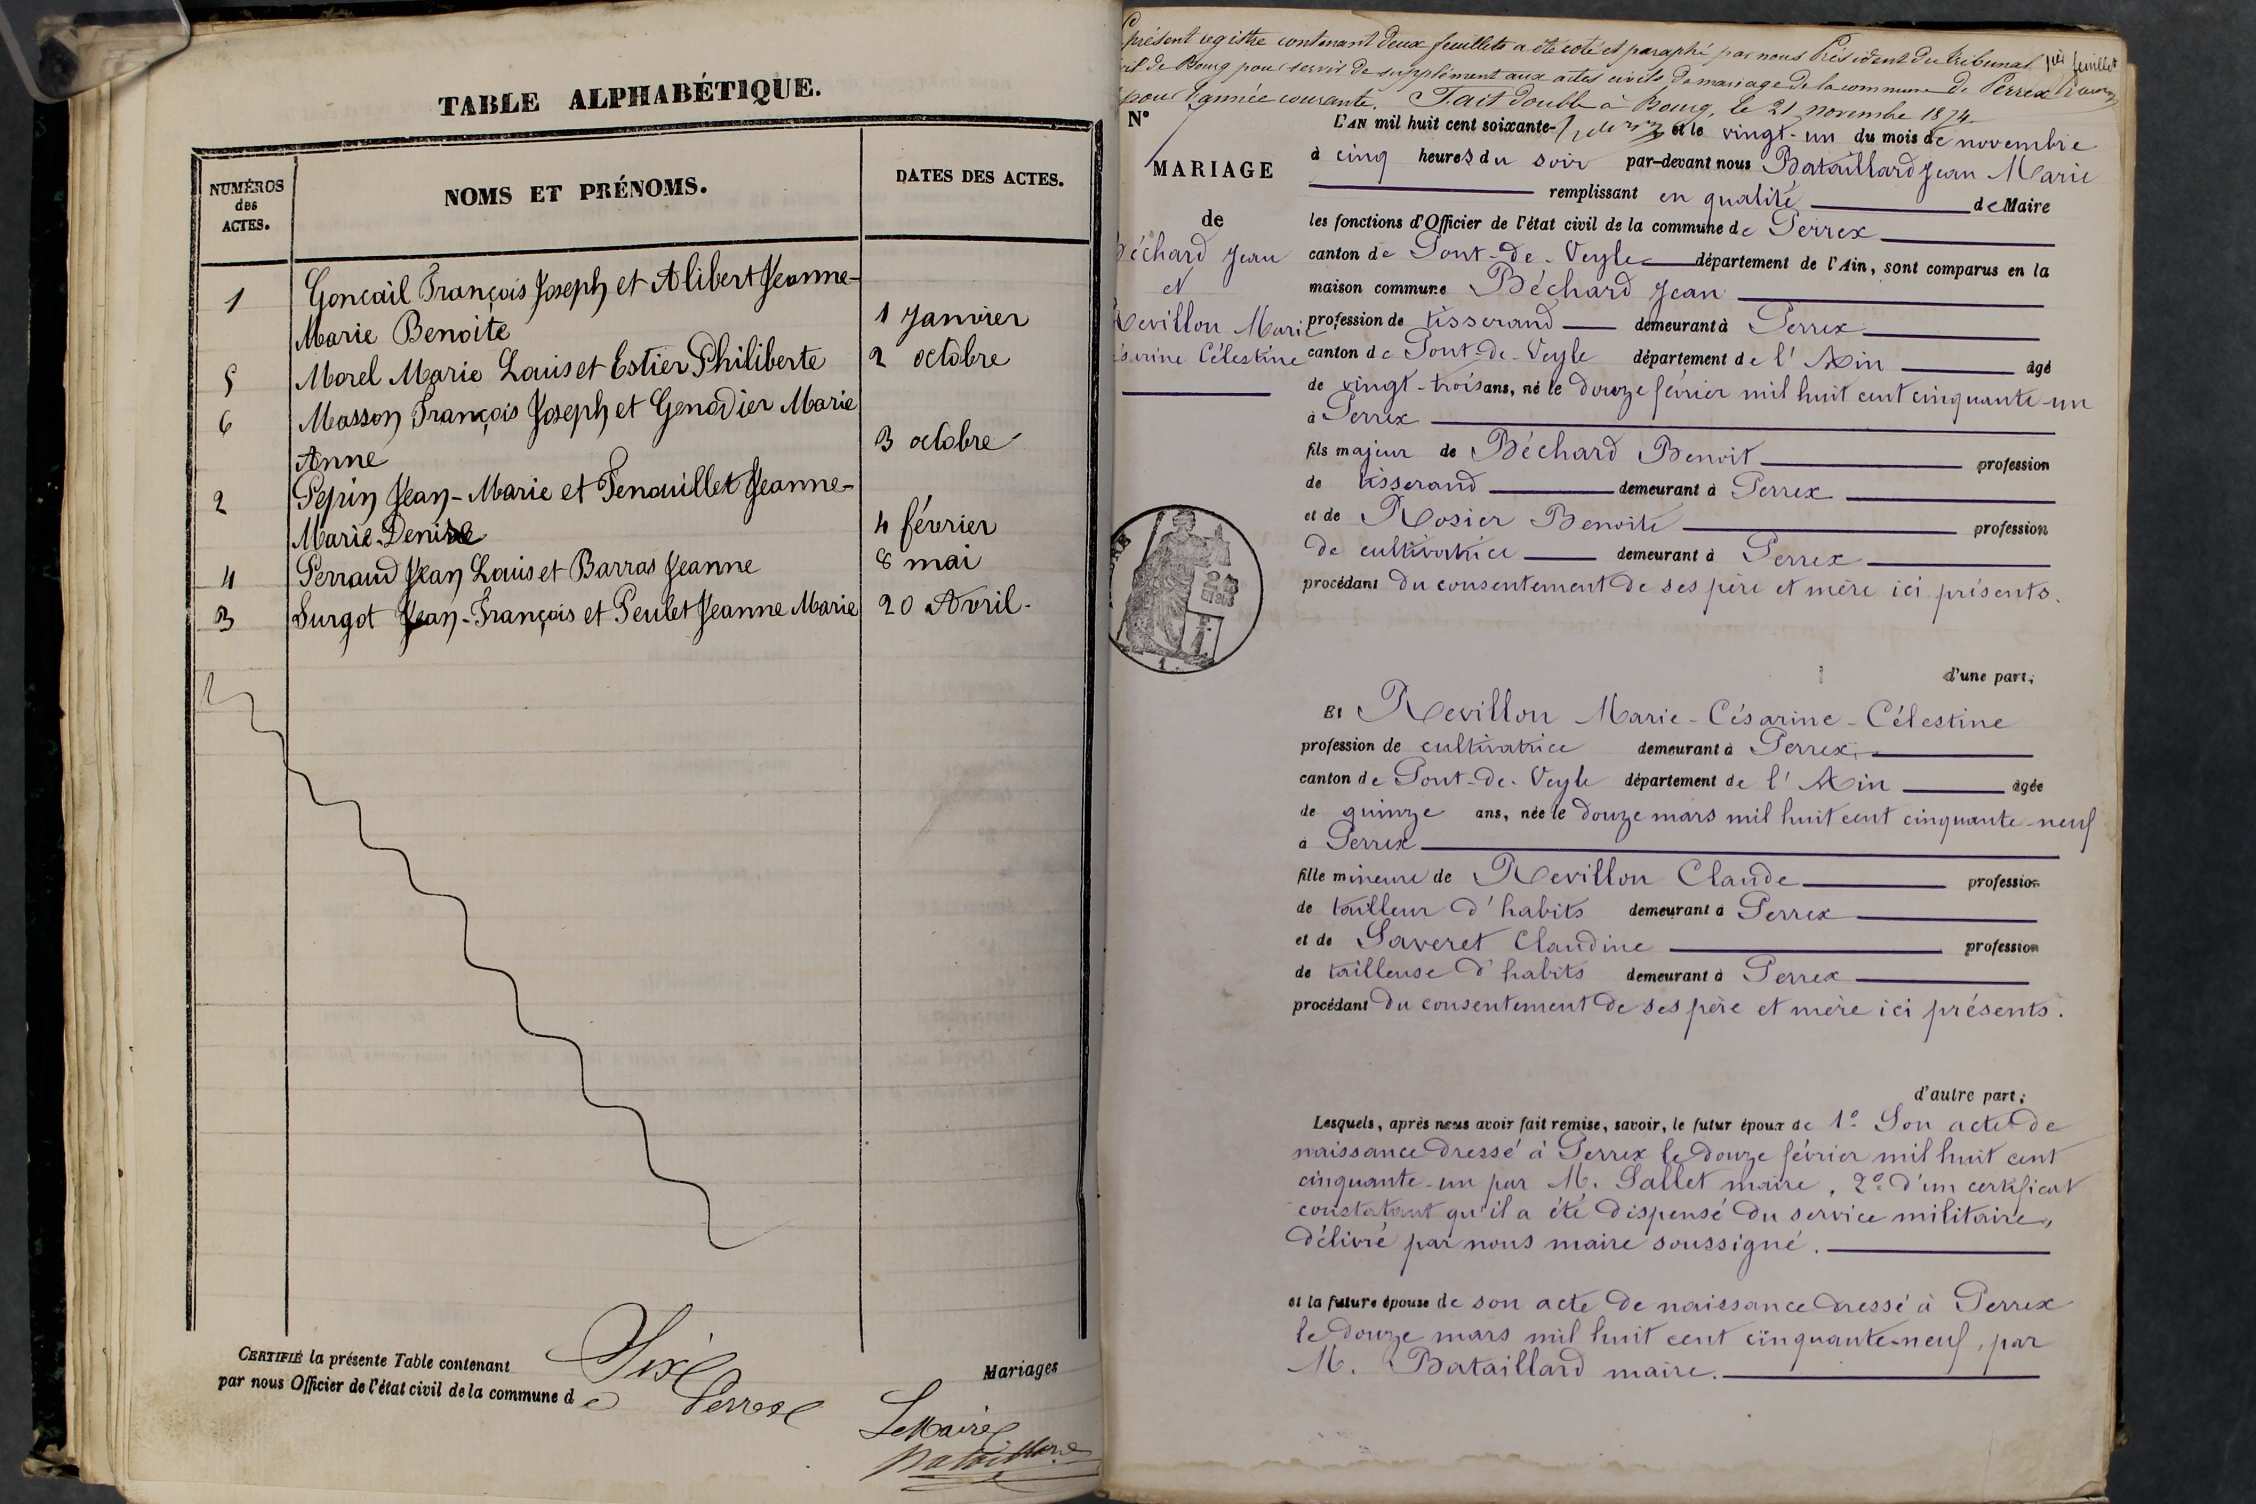 TABLE ALPHABÉTIQUE.
NUMÉROS
des
ACTES.
NOMS ET PRÉNOMS.
DATES DES ACTES.
1 Goncail François Joseph et Alibert Jeanne-
Marie Benoite 1 Janvier
5 Morel Marie Louis et Estier Philiberte 2 octobre
6 Masson François Joseph et Genodier Marie
Anne 3 octobre
2 Pepin Jean-Marie et Fenouillet Jeanne-
Marie-Denise 4 février
4 Perraud Jean Louis et Barras Jeanne 8 mai
3 Surgot Jean-François et Peulet Jeanne Marie 20 Avril.
CERTIFIÉ la présente Table contenant Six Mariages
par nous Officier de l'état civil de la commune de Perrex
Le Maire
Bataillard
présent registre contenant deux feuillets a été coté et paraphé par nous Président du tribunal
civil de Bourg pour servir de supplément aux actes civils de mariage de la commune de Perrex
pour l'année courante. Fait double à Bourg, le 21 novembre 1874.
feuillet
N°
MARIAGE
de
Béchard Jean
et
Revillon Marie
Césarine Célestine
L'AN mil huit cent soixante- et le vingt-un du mois de novembre
à cinq heures du soir par-devant nous Bataillard Jean Marie
remplissant en qualité de Maire
les fonctions d'Officier de l'état civil de la commune de Perrex
canton de Pont-de-Veyle département de l'Ain, sont comparus en la
maison commune Béchard Jean
profession de tisserand demeurant à Perrex
canton de Pont-de-Veyle département de l'Ain âgé
de vingt-trois ans, né le douze février mil huit cent cinquante-un
à Perrex
fils majeur de Béchard Benoit profession
de tisserand demeurant à Perrex
et de Rosier Benoite profession
de cultivatrice demeurant à Perrex
procédant du consentement de ses père et mère ici présents.
d'une part;
Et Revillon Marie-Césarine-Célestine
profession de cultivatrice demeurant à Perrex
canton de Pont-de-Veyle département de l'Ain âgée
de quinze ans, née le douze mars mil huit cent cinquante-neuf
à Perrex
fille mineure de Revillon Claude profession
de tailleur d'habits demeurant à Perrex
et de Saveret Claudine profession
de tailleuse d'habits demeurant à Perrex
procédant du consentement de ses père et mère ici présents.
d'autre part;
Lesquels, après nous avoir fait remise, savoir, le futur époux de 1° Son acte de
naissance dressé à Perrex le douze février mil huit cent
cinquante-un par M. Sallet maire, 2° d'un certificat
constatant qu'il a été dispensé du service militaire,
délivré par nous maire soussigné.
et la future épouse de son acte de naissance dressé à Perrex
le douze mars mil huit cent cinquante-neuf, par
M. Bataillard maire.